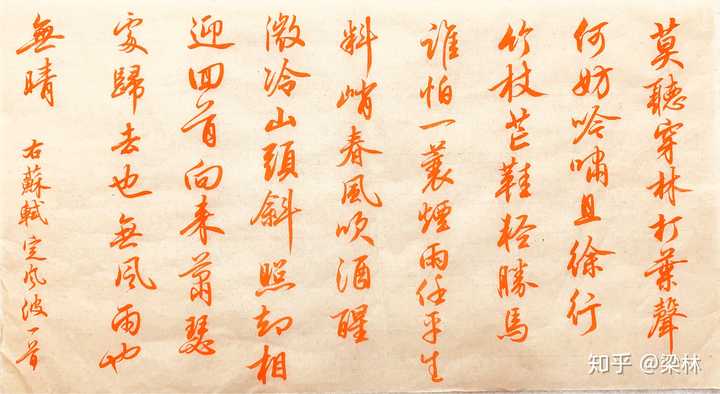 莫聽穿林打葉聲
何妨吟嘯且徐行
竹杖芒鞋輕勝馬
誰怕一蓑煙雨任平生
料峭春風吹酒醒
微冷山頭斜照却相
迎回首向來蕭瑟
處歸去也無風雨也
無晴
右蘇軾定風波一首
知乎 @梁林